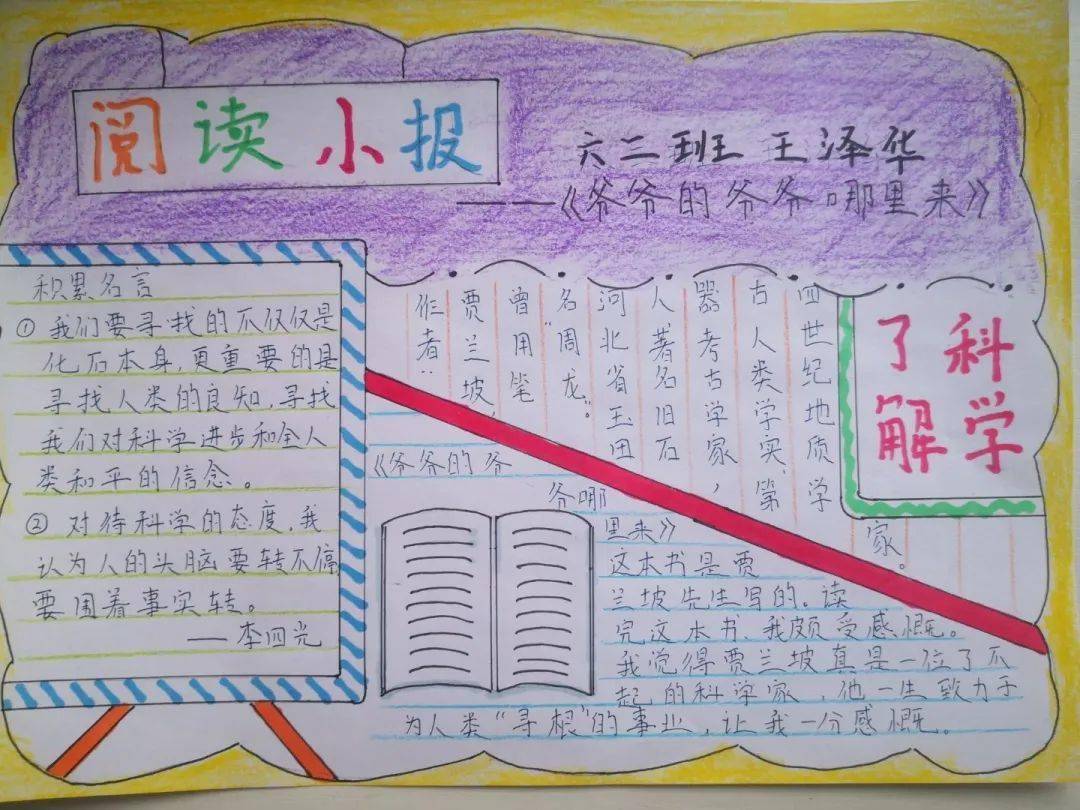 阅读小报
六二班 王泽华
——《爷爷的爷爷哪里来》
积累名言
① 我们要寻找的不仅仅是
化石本身，更重要的是
寻找人类的良知，寻找
我们对科学进步和全人
类和平的信念。
② 对待科学的态度，我
认为人的头脑要转不停
要围着事实转。
——李四光
作者：
贾兰坡，
曾用笔
名“周龙”。
河北省玉田
人著名旧石
器考古学家，
古人类学实、第
四世纪地质学
家。
了解
科学
《爷爷的爷
爷哪
里来》
这本书是贾
兰坡先生写的。读
完这本书、我颇受感慨。
我觉得贾兰坡真是一位了不
起的科学家，他一生致力于
为人类“寻根”的事业，让我一分感慨。